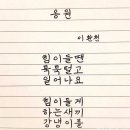 응원
이환천
힘이들땐
툭툭털고
일어나요
힘이들게
하는새끼
강냉이를